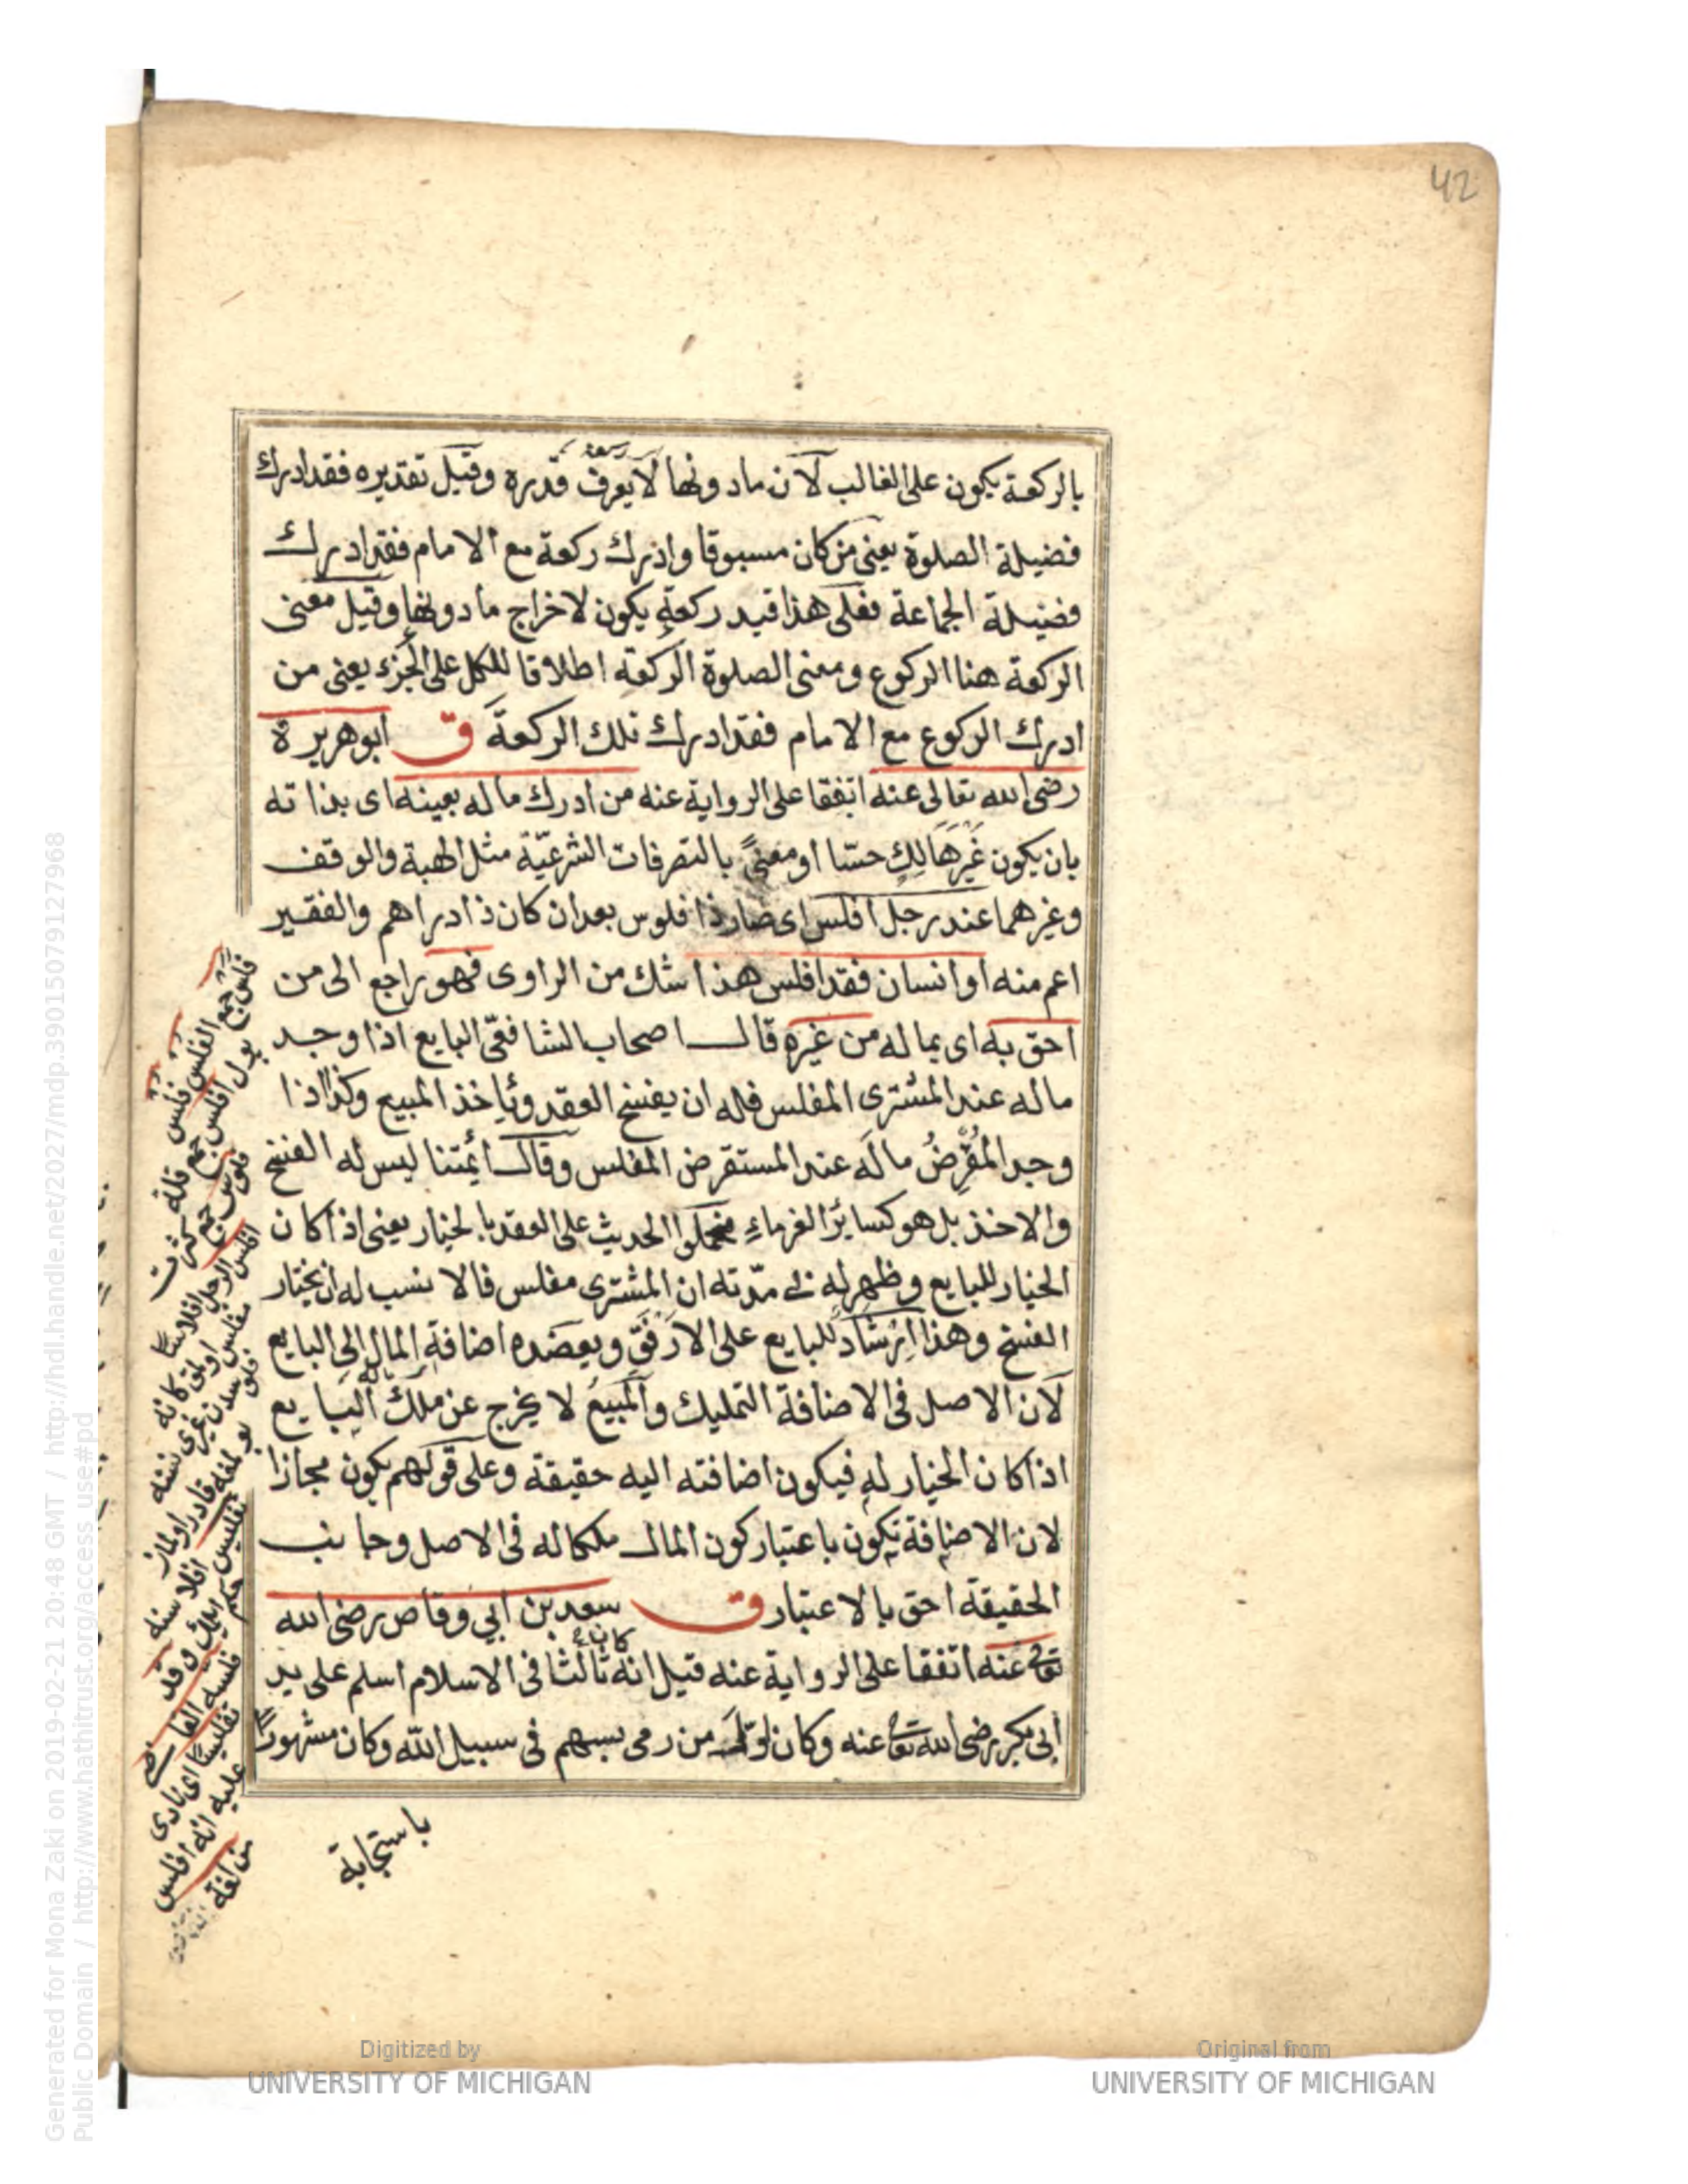 42
بالركعة يكون على الغالب لان مادونها لا يعرف قدره وقيل تقديره فقد ادرك
فضيلة الصلوة يعنى من كان مسبوقا وادرك ركعة مع الامام فقد ادرك
فضيلة الجماعة فعلى هذا قيد ركعة يكون لاخراج مادونها وقيل معنى
الركعة هنا الركوع ومعنى الصلوة الركعة اطلاقا للكل على الجزء يعنى من
ادرك الركوع مع الامام فقد ادرك تلك الركعة ق ابوهريرة
رضى الله تعالى عنه اتفقا على الرواية عنه من ادرك ماله بعينه اى بذاته
بان يكون غير هالك حسّا او معنىً بالتصرفات الشرعيّة مثل الهبة والوقف
وغيرهما عند رجل افلس اى صار ذا فلوس بعد ان كان ذا دراهم والفقير
اعم منه او انسان فقد افلس هذا شك من الراوى فهو راجع الى من
احق به اى بماله من غيره قال اصحاب الشافعىّ البايع اذا وجد
ماله عند المشترى المفلس فله ان يفسخ العقد وياخذ المبيع وكذا اذا
وجد المُقرِضُ مالَه عند المستقرض المفلس وقال ائمتنا ليس له الفسخ
والاخذ بل هو كسائر الغرماء فحملوا الحديث على العقد بالخيار يعنى اذا كان
الخيار للبايع وظهر له فى مدّته ان المشترى مفلس فالانسب له ان يختار
الفسخ وهذا ارشاد للبايع على الارفق ويعضده اضافة المال الى البايع
لان الاصل فى الاضافة التمليك والمبيع لا يخرج عن ملك البايع
اذا كان الخيار له فيكون اضافته اليه حقيقة وعلى قولهم يكون مجازا
لان الاضافة تكون باعتبار كون المال ملكا له فى الاصل وجانب
الحقيقة احق بالاعتبار ق سعد بن ابي وقاص رضى الله
تعالى عنه اتفقا على الرواية عنه قيل انه كان ثالثا فى الاسلام اسلم على يد
ابى بكر رضى الله تعالى عنه وكان اوّل من رمى بسهم فى سبيل الله وكان مشهورًا
باستجابة
افلس الرجل افلاسًا
فلسه القاضى
تفليسًا اى نادى
عليه انه افلس
Generated for Mona Zaki on 2019-02-21 20:48 GMT / http://hdl.handle.net/2027/mdp.39015079127968
Public Domain / http://www.hathitrust.org/access_use#pd
Digitized by
UNIVERSITY OF MICHIGAN
Original from
UNIVERSITY OF MICHIGAN